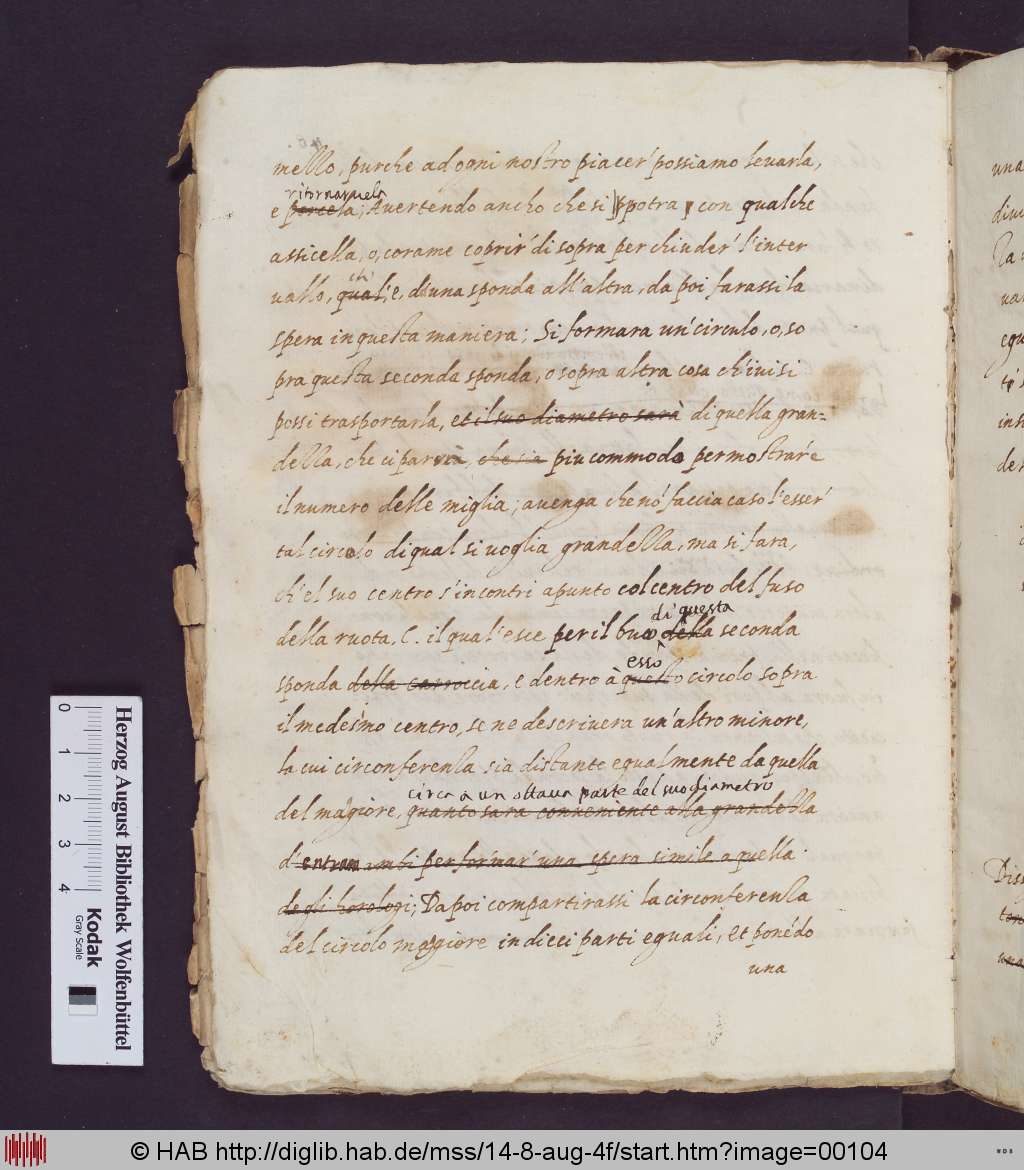 mello, purche ad ogni nostro piacer' possiamo leuarla,
ritornaruela
e porcela; Auertēdo ancho che si potra, con qualche
assicella, o, corame coprir' di sopra per chiuder' l'inter
ch'
uallo, qual'e, d'una sponda all'altra, da poi farassi la
spera in questa maniera; Si formara un' circulo, o, so
pra questa seconda sponda, o sopra altra cosa ch'iui si
possi trasportarla, et il suo diametro sarà di quella gran=
dezza, che ci parrà, che sia piu commodo per mostrare
il numero delle miglia; auenga che nō faccia caso l'esser'
tal circolo di qual si uoglia grandezza, ma si fara,
ch'el suo centro s'incontri apunto col centro del fuso
di questa
della ruota, C. il qual'esce per il buco della seconda
esso
sponda della carroccia, e dentro à questo circolo sopra
il medesimo centro, se ne descriuera un'altro minore,
la cui circonferenza sia distante egualmente da quella
circa à un ottaua parte del suo diametro
del magiore, quanto sara conueniente alla grandezza
d'entram ambi per formar' una spera simile a quella
de gli horologi; Da poi compartirassi la circonferenza
del circolo magiore in dieci parti eguali, et ponēdo
una
Herzog August Bibliothek Wolfenbüttel
Kodak
Gray Scale
0 1 2 3 4
© HAB http://diglib.hab.de/mss/14-8-aug-4f/start.htm?image=00104